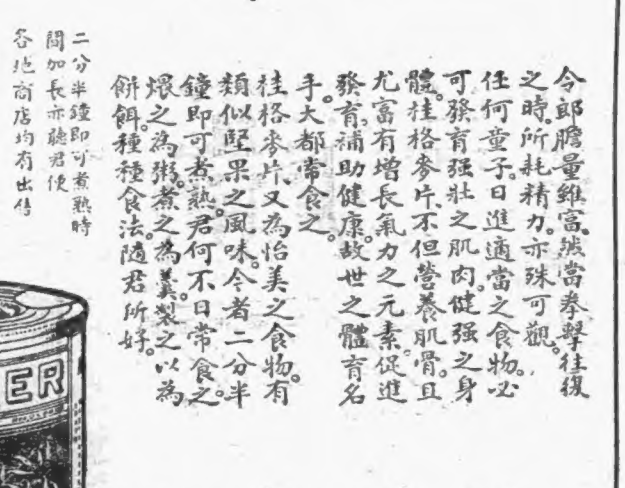 令郎膽量雖富。然當拳擊往復
之時。所耗精力。亦殊可觀。
任何童子。日進適當之食物。必
可發育强壯之肌肉。健强之身
體。桂格麥片。不但營養肌骨。且
尤富有增長氣力之元素。促進
發育。補助健康。故世之體育名
手。大都常食之。
桂格麥片。又為怡美之食物。有
類似堅果之風味。今者二分半
鐘即可煮熟。君何不日常食之。
煨之為粥。煮之為羹。製之以為
餅餌。種種食法。隨君所好。
二分半鐘即可煮熟時
間加長亦聽君便
各地商店均有出售
ER